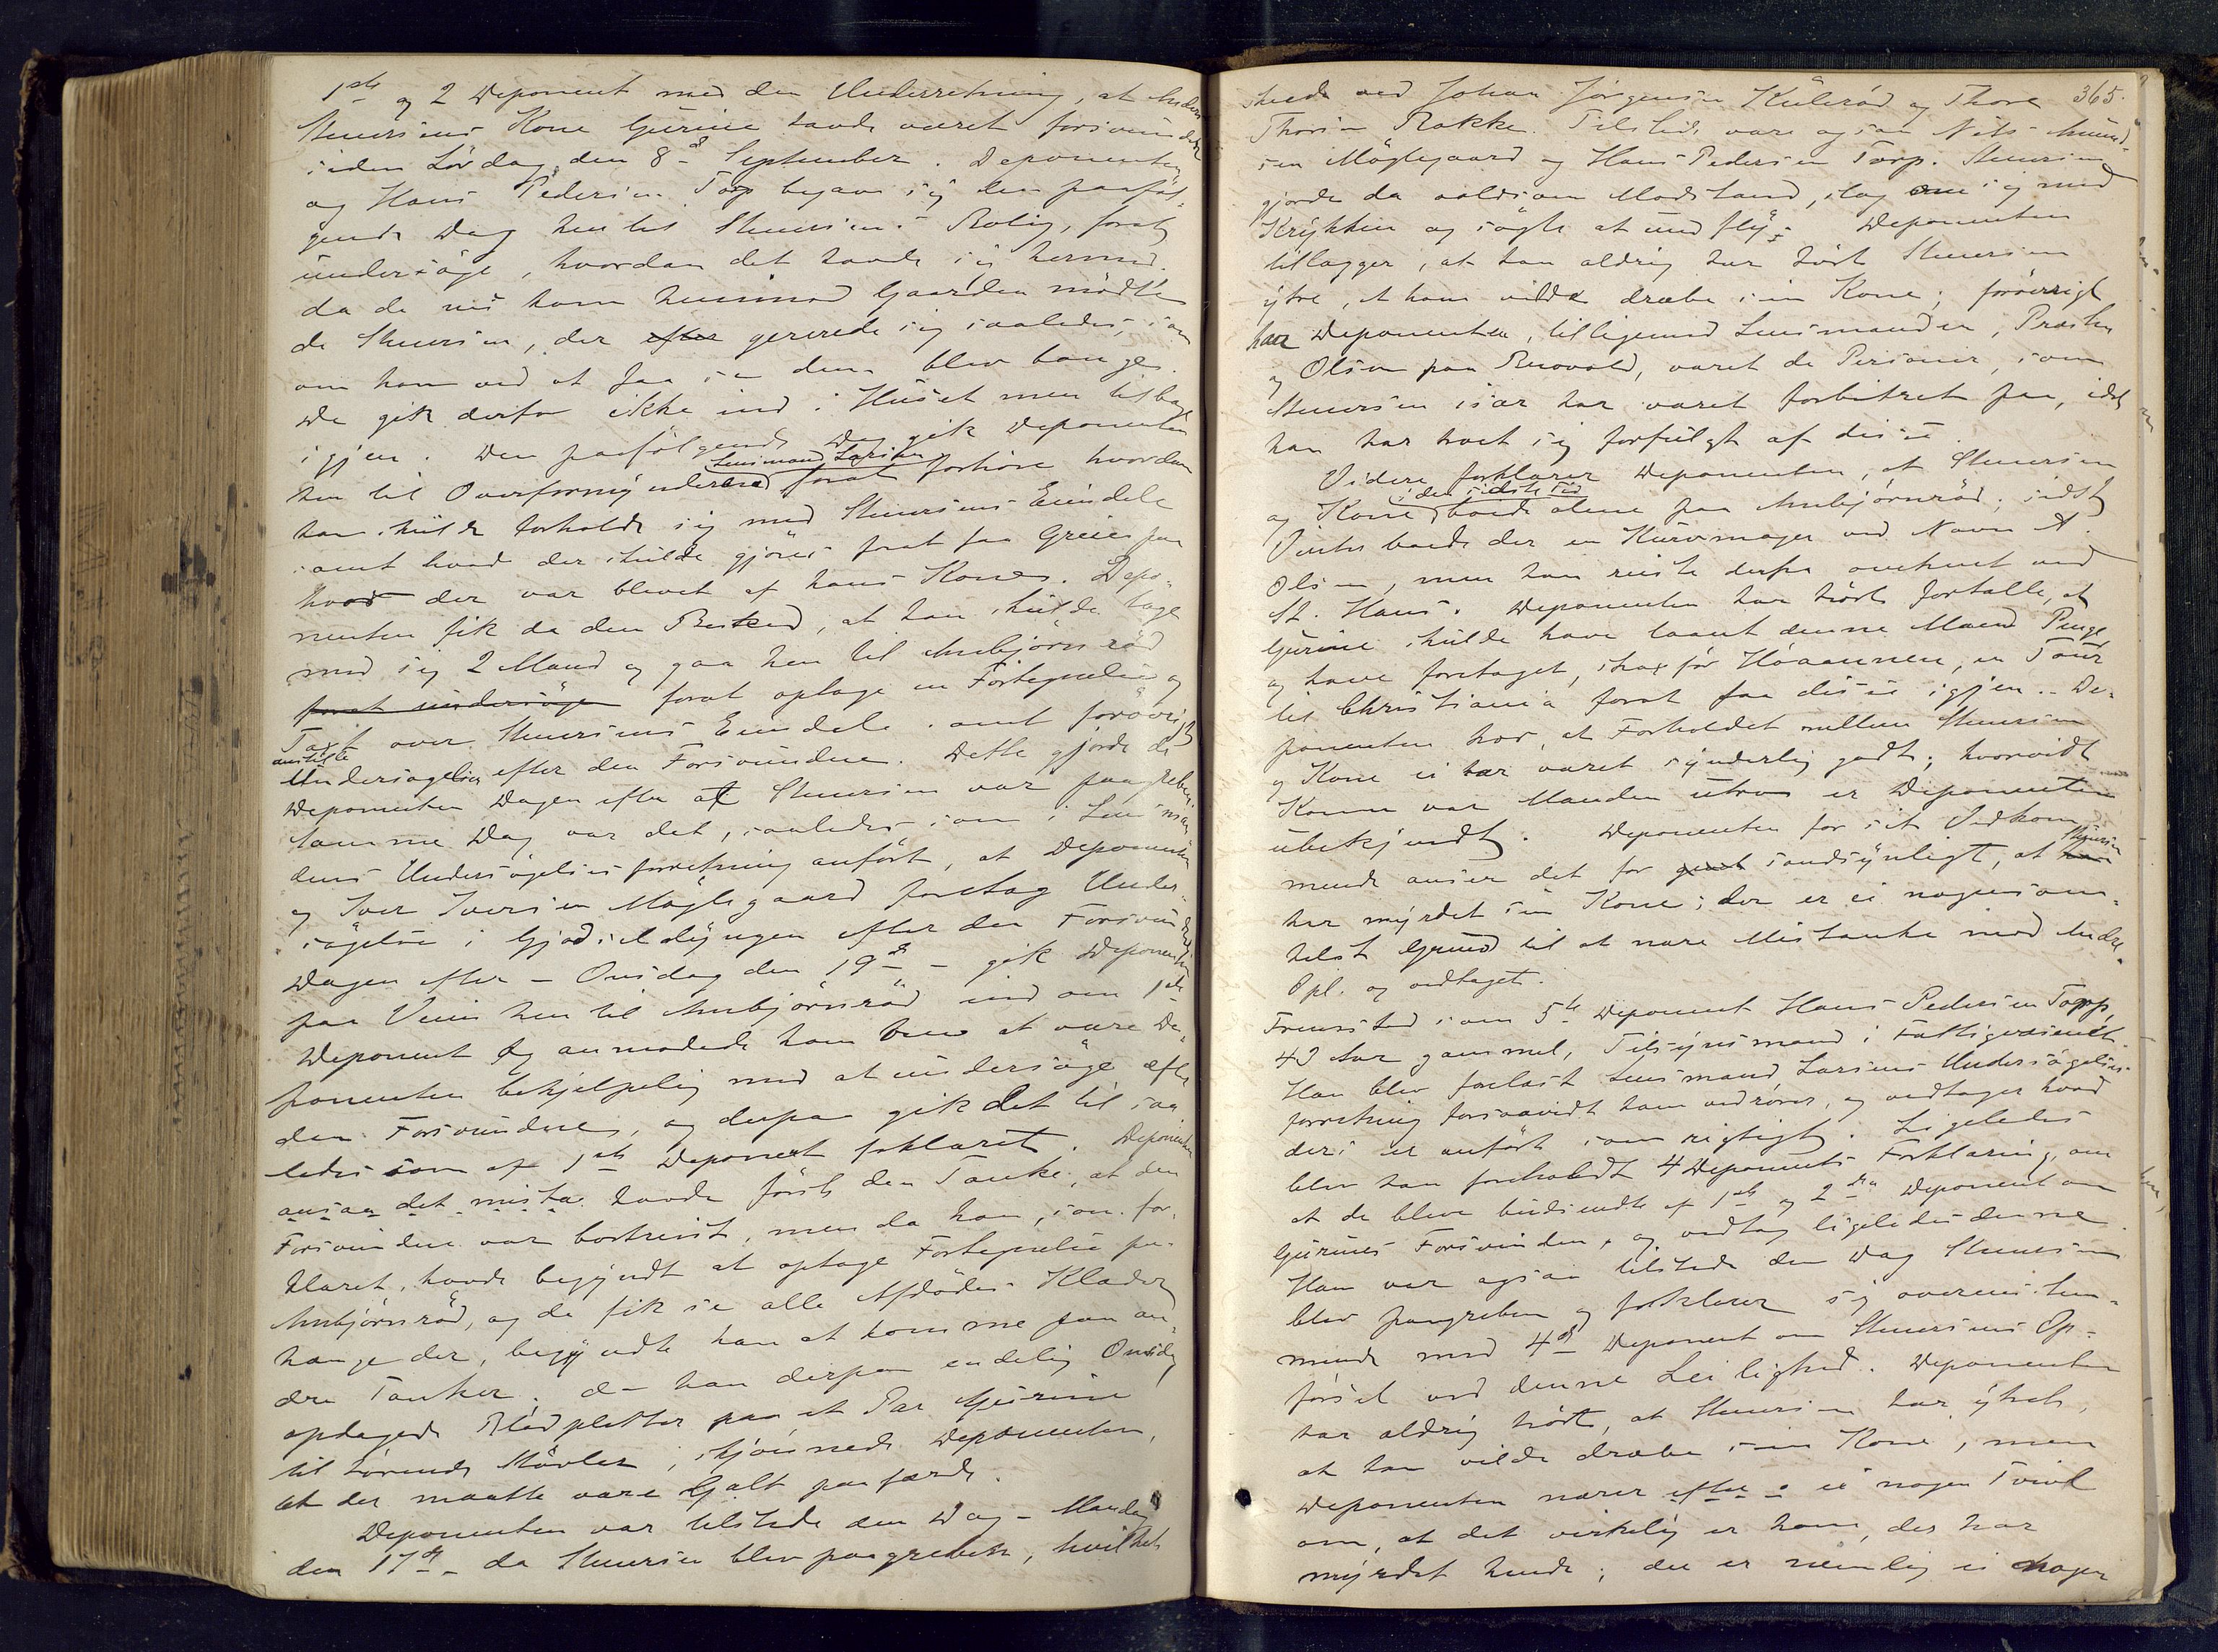 1ste og 2 Deponent med den Underretning, at Anders
Stuersens Kone Gurine havde været forsvundet
siden Lørdag den 8de September. Deponenten
og Hans Pedersen Torp begav sig den paaføl-
gende Dag hen til Stuersens Bolig, forat
undersøge, hvordan det havde sig hermed.
da de nu kom henimod Gaarden mødte
de Stuersen, der efter gererede sig saaledes, som
om han ved at faa se dem blev bange.
De gik derfor ikke ind i Huset men tilbage
igjen. Den paafølgende Dag gik Deponenten
Lensmand Larsen
hen til Overformynderen forat forhøre hvordan
han skulde forholde sig med Stuersens Eiendele
samt hvad der skulde gjøres forat faa Greie paa
hvad der var blevet af hans Kone. Depo-
nenten fik da den Besked, at han skulde tage
med sig 2 Mand og gaa hen til Anbjørnrød
forat undersøge forat optage en Fortegnelse og
Taxt over Stuersens Eiendele samt forøvrigt
anstille
Undersøgelser efter den Forsvundne. Dette gjorde de
Deponenten Dagen efter at Stuersen var paagreben.
Samme Dag var det, saaledes som i Lensman-
dens Undersøgelsesforretning anført, at Deponenten
og Iver Iversen Møglegaard foretog Under-
søgelse i Gjødseldyngen efter den Forsvundne.
Dagen efter – Onsdag den 19de – gik Deponenten
paa Veien hen til Anbjørnrød ind om 1ste
Deponent og anmodede ham om at være De-
ponenten behjelpelig med at undersøge efter
den Forsvundne, og derpaa gik det til saa-
ledes som af 1ste Deponent forklaret. Deponenten
ansaa det mista havde først den Tanke, at den
Forsvundne var bortreist, men da han, som for-
klaret, havde begyndt at optage Fortegnelse paa
Anbjørnrød, og de fik se alle Afdødes Klæder
hange der, begyndte han at komme paa an-
dre Tanker. da han derpaa endelig Onsdag
opdagede Blodpletter paa et Par Gurine
tilhørende Støvler, skjønnede Deponenten,
at der maatte være Galt paafærde.
Deponenten var tilstede den Dag – Mandag
den 17de – da Stuersen blev paagreben, hvilket
365.
skede ved Johan Jørgensen Kulerød og Thore
Thorsen Bakke. Tilstede vare ogsaa Nils Amund-
sen Møglegaard og Hans Pedersen Torp. Stuersen
gjorde da voldsom Modstand, slog om sig med
Krykken og søgte at undfly. Deponenten
tillægger, at han aldrig har hørt Stuersen
ytre, at han vilde dræbe sin Kone; forøvrigt
har Deponenten, tilligemed Lensmanden, Præsten
og Olsen paa Ruovold, været de Personer, som
Stuersen især har været forbitret paa, idet
han har troet sig forfulgt af disse.
Videre forklarer Deponenten, at Stuersen
i den sidste Tid
og Kone boede alene paa Anbjørnrød; sidst
Vinter boede der en Kurvmager ved Navn A.
Olsen, men han reiste derfra omtrent ved
St. Hans. Deponenten har hørt fortalle, at
Gurine skulde have laant denne Mand Penge
og have foretaget, strax før Høaannen, en Tour
til Christiania forat faa disse igjen. De-
ponenten tror, at Forholdet mellem Stuersen
og Kone ei har været synderlig godt; hvorvidt
Konen var Manden utro er Deponenten
ubekjendt. Deponenten for sit Vedkom-
Stuersen
mende anser det for sandsynligt, at han
har myrdet sin Kone; der er ei nogensom-
helst Grund til at nære Mistanke mod Andre.
Opl. og vedtaget.
Fremstod som 5te Deponent Hans Pedersen Torp,
42 Aar gammel, Tilsynsmand i Fattigvæsenet.
Han blev forelæst Lensmand Larsens Undersøgelses-
forretning forsaavidt ham vedrører, og vedtager hvad
deri er anført som rigtigt. Ligeledes
blev han foreholdt 4 Deponents Forklaring, om
at de bleve budsendte af 1ste og 2den Deponent om
Gurines Forsvinden, og vedtog ligeledes denne.
Han var ogsaa tilstede den Dag Stuersen
blev paagreben og forklarer sig overensstem-
mende med 4de Deponent om Stuersens Op-
førsel ved denne Leilighed. Deponenten
har aldrig hørt, at Stuersen har ytret,
at han vilde dræbe sin Kone, men
Deponenten nærer efter ei nogen Tvivl
om, at det virkelig er ham, der har
myrdet hende; der er nemlig ei nogen